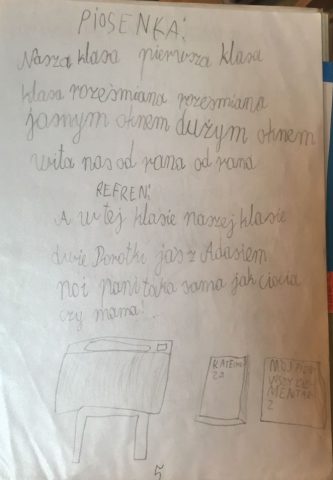 PIOSENKA:
Nasza klasa pierwsza klasa
klasa roześmiana roześmiana
jasnym oknem dużym oknem
wita nas od rana od rana
REFREN:
A w tej klasie naszej klasie
dwie Dorotki jaś z Adasiem
no i pani taka sama jak ciocia
czy mama!
KATECHI
ZM
MÓJ PIER
WSZY ELE
MENTAR
Z
5